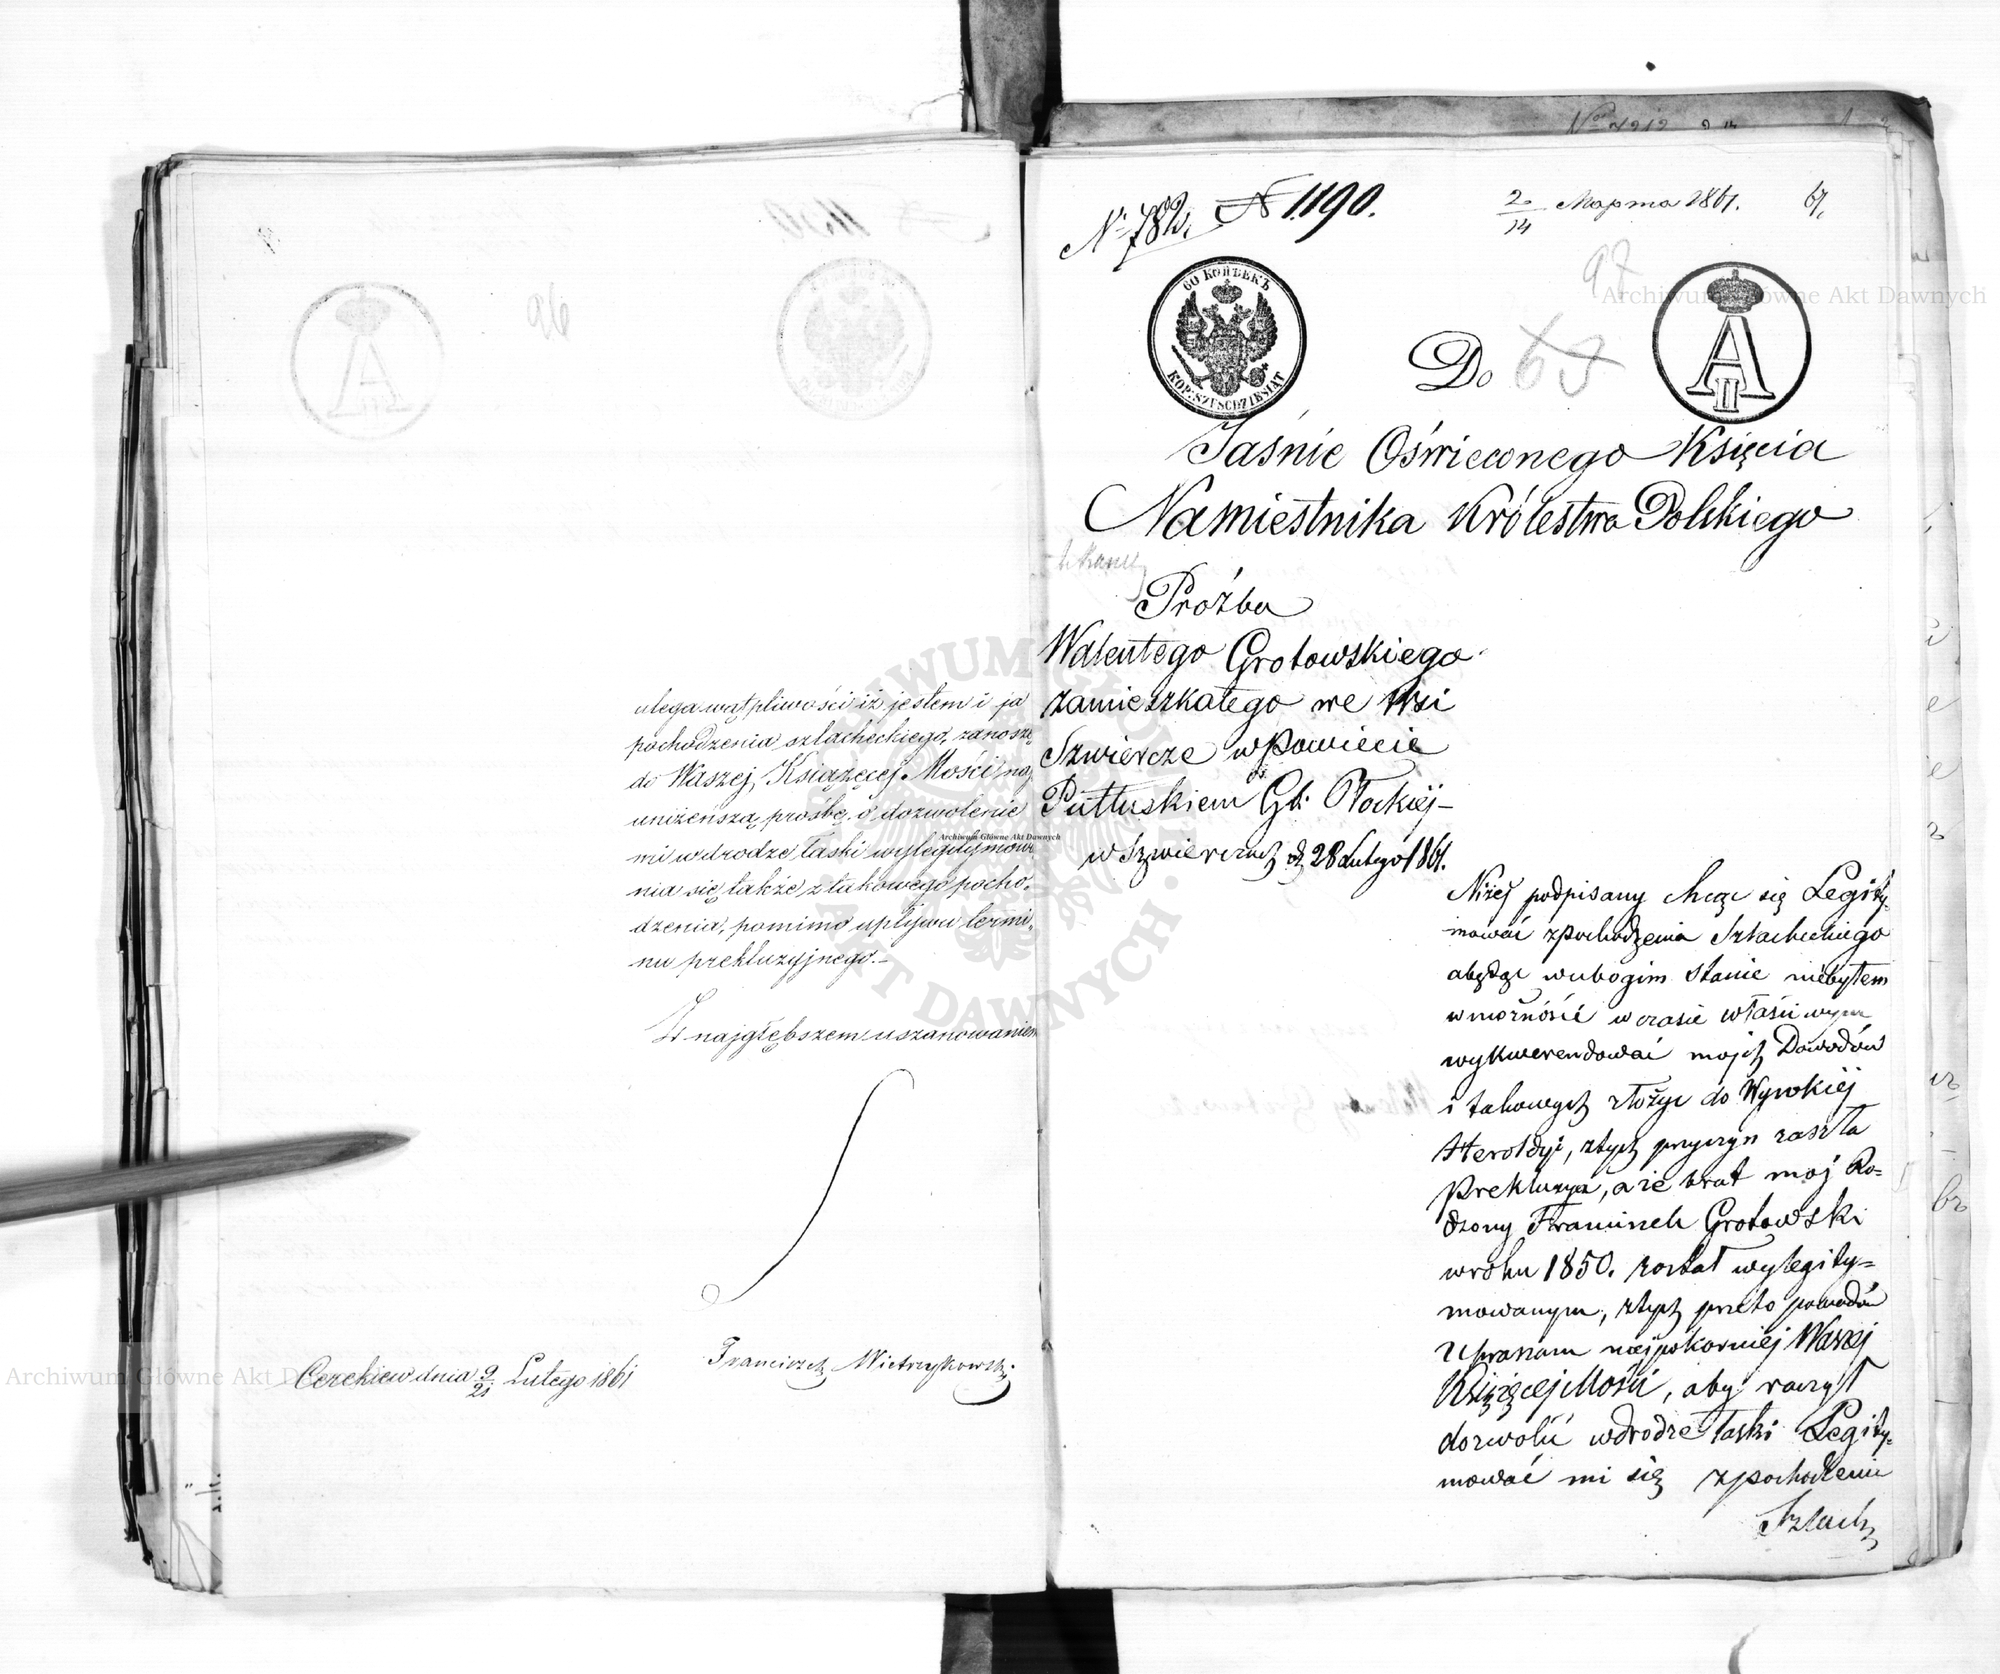 96
ulega wątpliwości iż jestem i ja
pochodzenia szlacheckiego, zanoszę
do Waszej Książęcej Mości naj
uniżeńszą prośbę o dozwolenie
mi w drodze łaski wylegitymowa
nia się także z takowego pocho,
dzenia, pomimo upływu termi,
nu prekluzyjnego.-
Z najgłębszem uszanowaniem
Franciszek Wietrzykowski
Cerekiew dnia 9/21 Lutego 1861
Nº 782. Nº 1190.
2/14 Марта 1861.
97
60 КОПѢЕКЪ
KOP: SZEŚĆDZIESIĄT
A II
Do
Jaśnie Oświeconego Księcia
Namiestnika Królestwa Polskiego
Prózba
Walentego Grotowskiego
zamieszkałego we Wsi
Szwiercze w Powiecie
Pułtuskiem Gb: Płockiej-
w Szwierczach d. 28 Lutego 1861.
Niżej podpisany chcąc się Legity-
mować z pochodzenia Szlacheckiego
a będąc w ubogim stanie niebyłem
w możności w czasie właściwym
wykwerendować moich Dowodów
i takowych złożyć do Wysokiej
Heroldyi, z tych przyczyn zaszła
Prekluzya, a że brat moj Ro=
dzony Franciszek Grotowski
w roku 1850. został wylegity=
mowanym, z tych przeto powodów
Upraszam najpokorniej Waszej
Książęcej Mości, aby raczył
dozwolić w drodze łaski Legity-
mować mi się z pochodzenia
Szlach
Archiwum Główne Akt Dawnych
Archiwum Główne Akt Dawnych
Archiwum Główne Akt Dawnych
ARCHIWUM GŁÓWNE AKT DAWNYCH